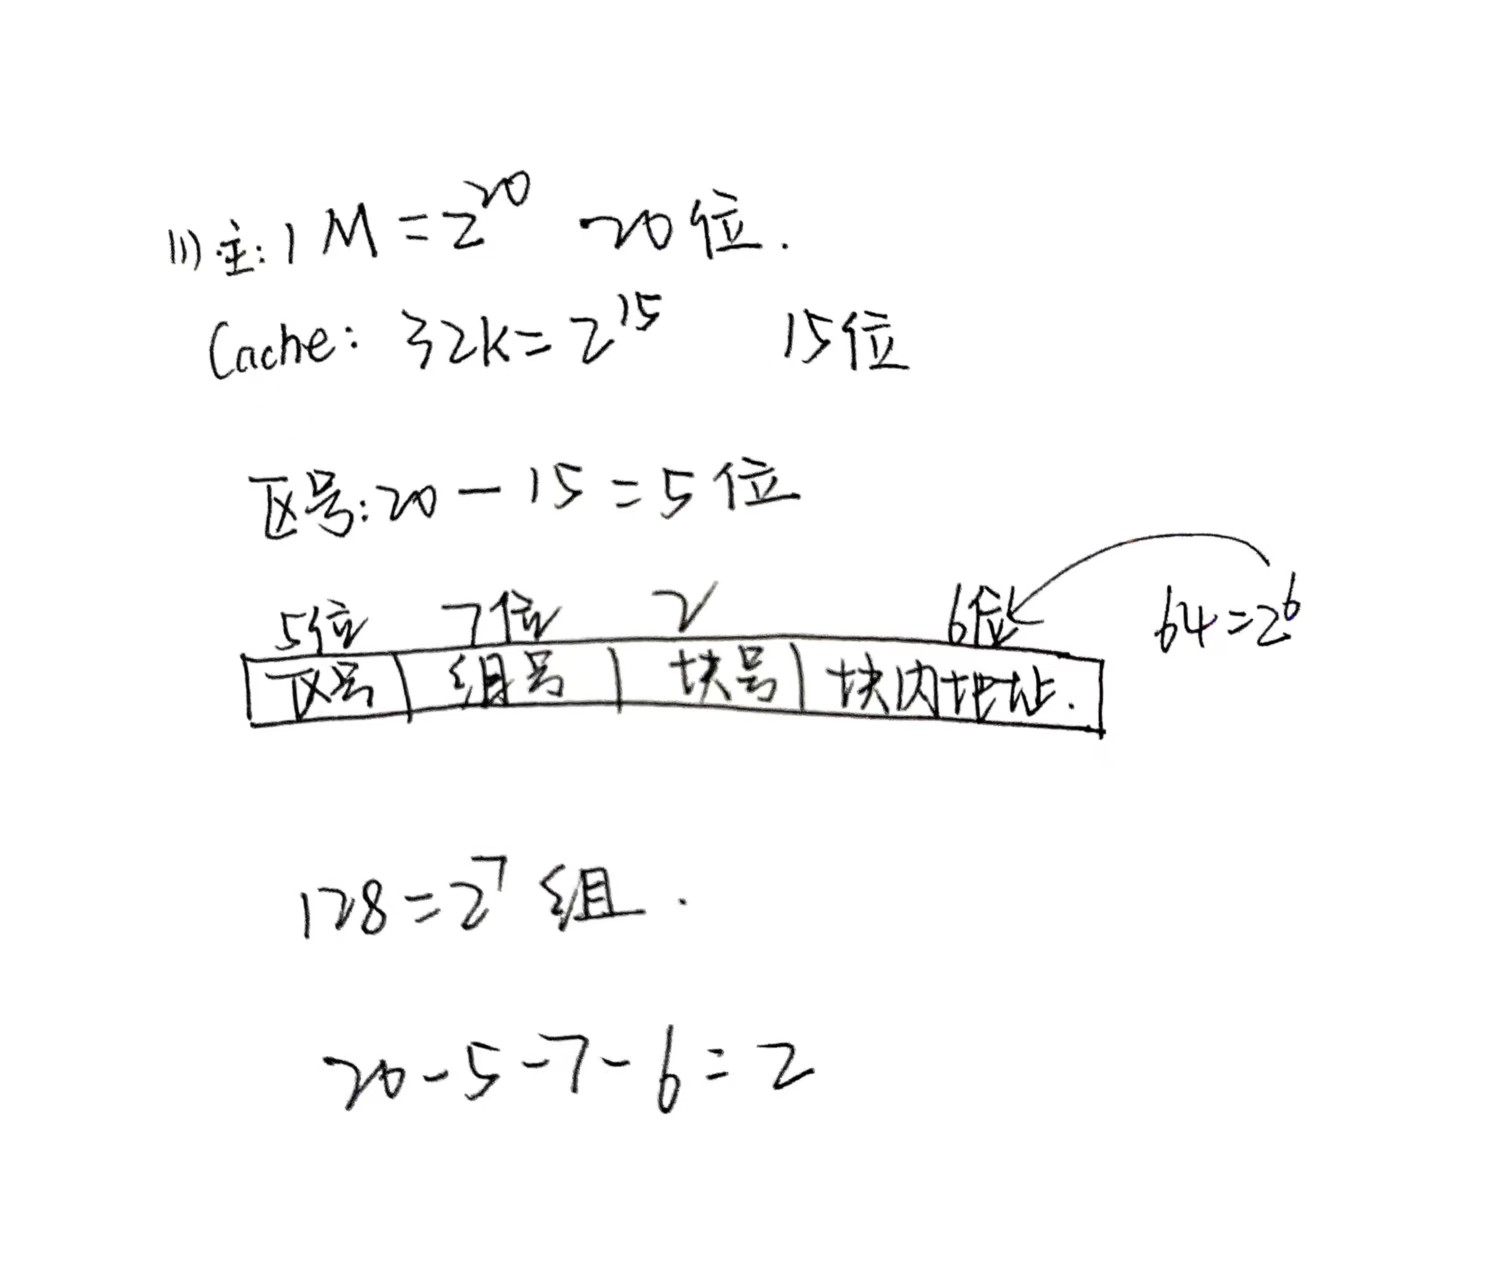 (1) 主: 1M = 2^20 20位.
Cache: 32K = 2^15 15位
区号: 20 - 15 = 5位
5位 7位 2 6位 64 = 2^6
区号 组号 块号 块内地址.
128 = 2^7 组.
20 - 5 - 7 - 6 = 2